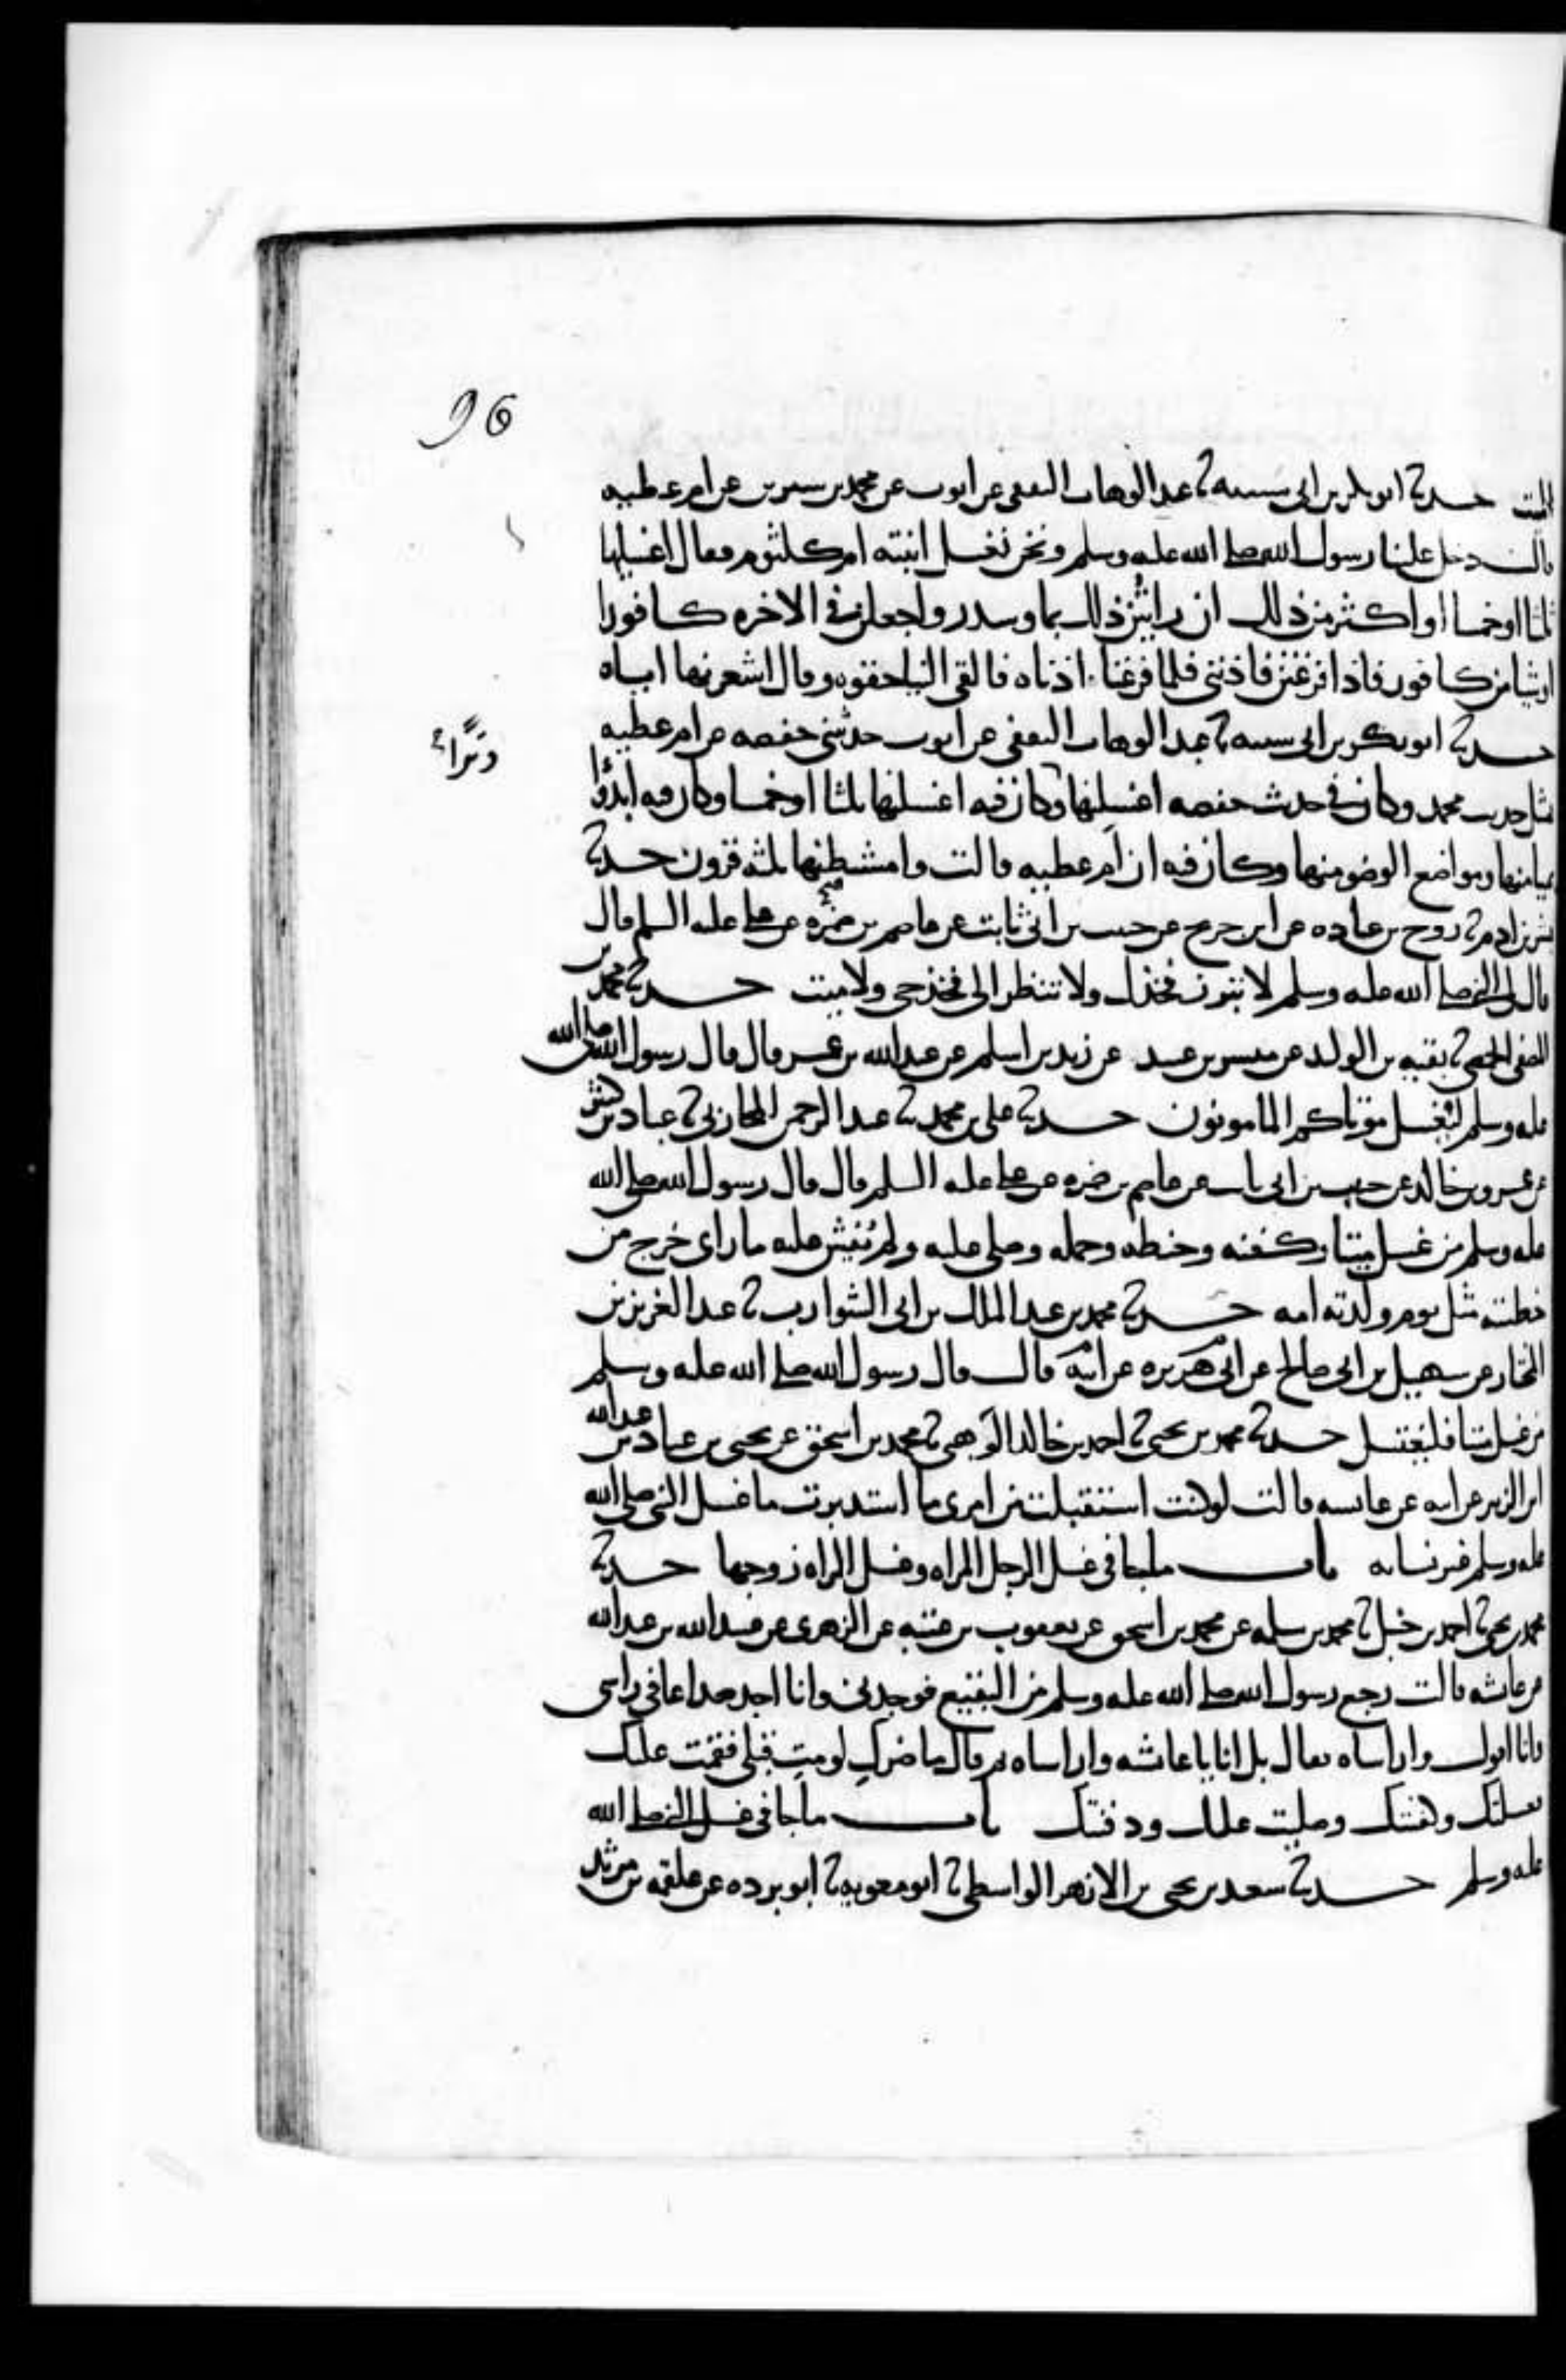 96
الميت حدثنا ابو بكر بن ابى شيبه ثنا عبد الوهاب الثقفى عن ايوب عن محمد بن سيرين عن ام عطيه
قالت دخل علينا رسول الله صلى الله عليه وسلم ونحن نغسل ابنته ام كلثوم فقال اغسلنها
ثلثا او خمسا او اكثر من ذلك ان رايتن ذلك بماء وسدر واجعلن فى الاخره كافورا
او شيا من كافور فاذا فرغتن فاذننى فلما فرغنا اذناه فالقى الينا حقوه وقال اشعرنها اياه
حدثنا ابو بكر بن ابى شيبه ثنا عبد الوهاب الثقفى عن ايوب حدثتنى حفصه عن ام عطيه
وترا
مثل حديث محمد وكان فى حديث حفصه اغسلنها وكان فيه اغسلنها ثلثا او خمسا وكان فيه ابدؤا
بميامنها ومواضع الوضو منها وكان فيه ان ام عطيه قالت وامشطنها ثلثه قرون حدثنا
بشر بن ادم ثنا روح بن عباده عن ابن جريج عن حبيب بن ابى ثابت عن عاصم بن ضمره عن على عليه السلم قال
قال لى النبى صلى الله عليه وسلم لا تبرز فخذك ولا تنظر الى فخذ حى ولا ميت حدثنا محمد بن
المصفى الحمصى ثنا بقيه بن الوليد عن مبشر بن عبيد عن زيد بن اسلم عن عبد الله بن عمر قال قال رسول الله صلى الله
عليه وسلم ليغسل موتاكم المامونون حدثنا على بن محمد ثنا عبد الرحمن المحاربى ثنا عباد بن كثير
عن عمرو بن خالد عن حبيب بن ابى ثابت عن عاصم بن ضمره عن على عليه السلم قال قال رسول الله صلى الله
عليه وسلم من غسل ميتا وكفنه وحنطه وحمله وصلى عليه ولم يفش عليه ما راى خرج من
خطيته مثل يوم ولدته امه حدثنا محمد بن عبد الملك بن ابى الشوارب ثنا عبد العزيز بن
المختار عن سهيل بن ابى صالح عن ابى هريره عن ابيه قال قال رسول الله صلى الله عليه وسلم
من غسل ميتا فليغتسل حدثنا محمد بن يحيى ثنا احمد بن خالد الوهبى ثنا محمد بن اسحق عن يحيى بن عباد بن عبد الله
ابن الزبير عن ابيه عن عايشه قالت لو كنت استقبلت من امرى ما استدبرت ما غسل النبى صلى الله
عليه وسلم غير نسايه باب ما جا فى غسل الرجل المراه وغسل المراه زوجها حدثنا
محمد بن يحيى ثنا احمد بن حنبل ثنا محمد بن سلمه عن محمد بن اسحق عن يعقوب بن عتبه عن الزهرى عن عبيد الله بن عبد الله
عن عايشه قالت رجع رسول الله صلى الله عليه وسلم من البقيع فوجدنى وانا اجد صداعا فى راسى
وانا اقول واراساه فقال بل انا يا عايشه واراساه ثم قال ما ضرك لو مت قبلى فقمت عليك
فغسلتك وكفنتك وصليت عليك ودفنتك باب ما جا فى غسل النبى صلى الله
عليه وسلم حدثنا سعيد بن يحيى بن الازهر الواسطى ثنا ابو معويه ثنا ابو برده عن علقمه بن مرثد